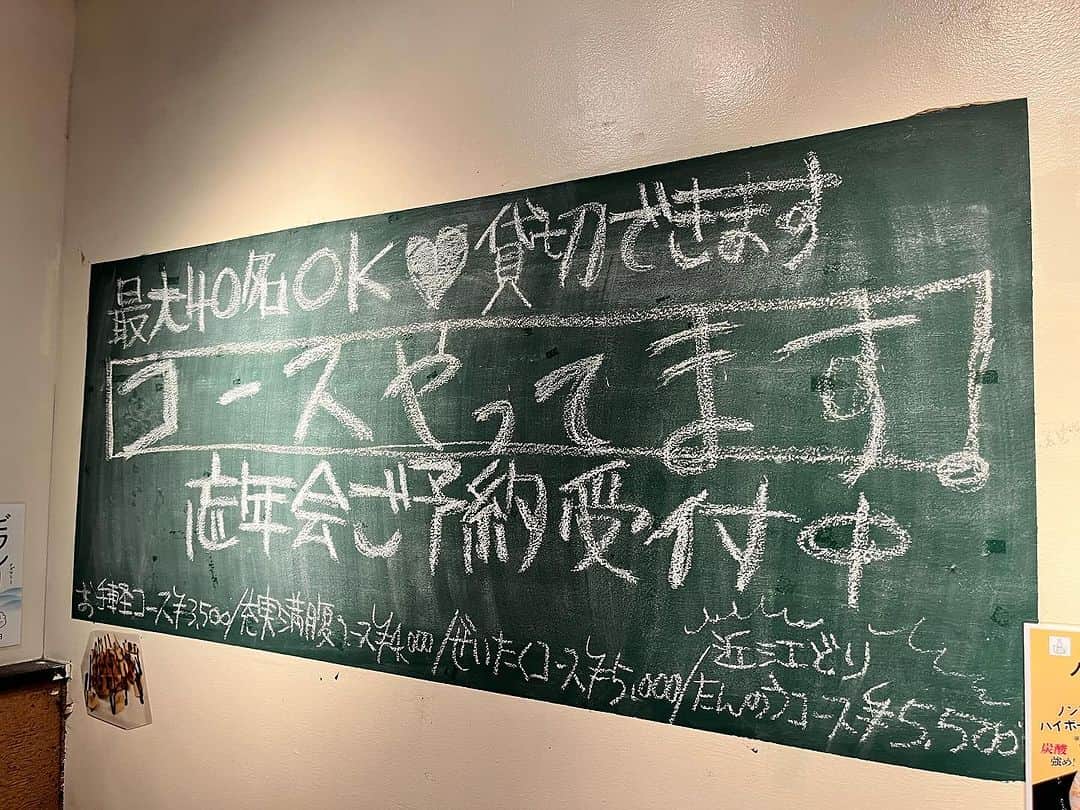 最大40名OK♥貸切できます
コースやってます!
忘年会ご予約受付中
近江どり
お手軽コース¥3,500/充実満腹コース¥4,000/ぜいたくコース¥5,000/たんのうコース¥5,500
ノン
ハイボー
炭酸
強め!